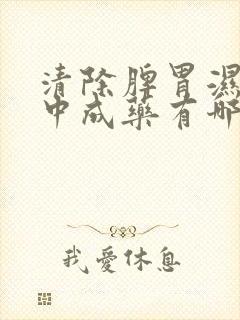 清除脾胃濕
中成藥有哪
我愛休息